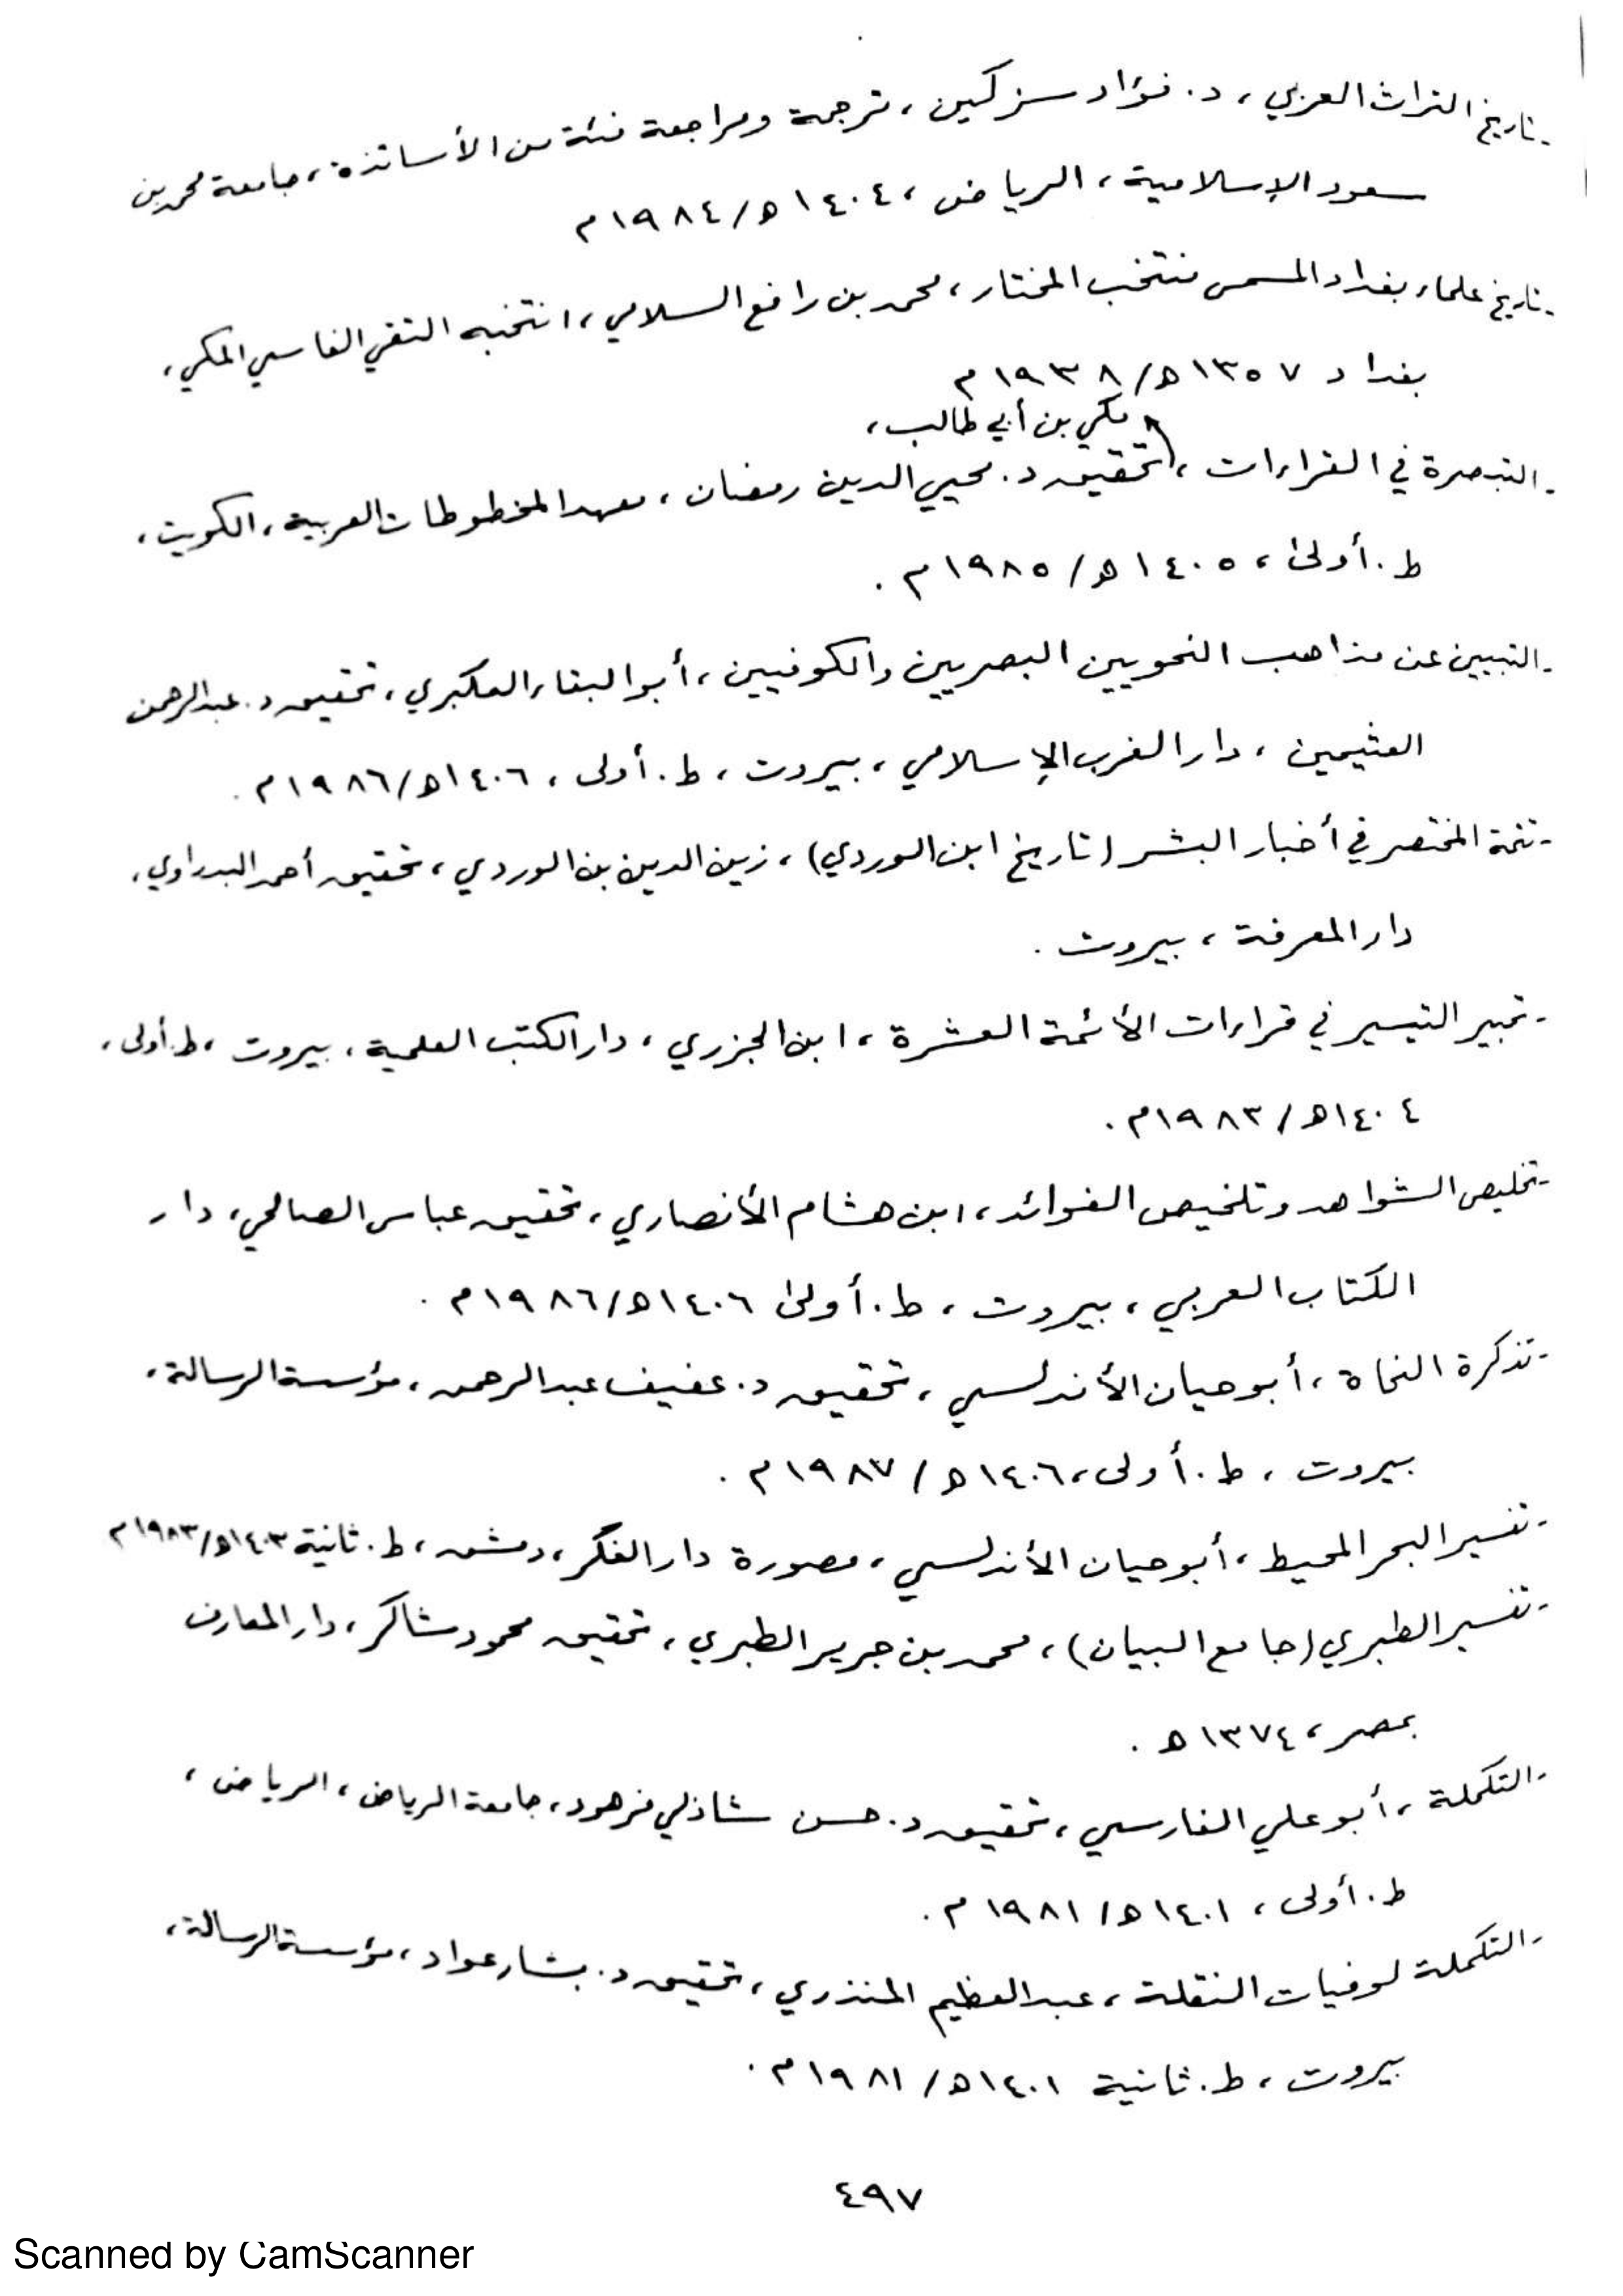 - تاريخ التراث العربي، د. فؤاد سزكين، ترجمة ومراجعة فئة من الأساتذة، جامعة محمد بن
سعود الإسلامية، الرياض، ١٤٠٤ه/١٩٨٤م
- تاريخ علماء بغداد المسمى منتخب المختار، محمد بن رافع السلامي، انتخبه التقي الفاسي المكي،
بغداد ١٣٥٧ه/١٩٣٨م
مكي بن أبي طالب،
- التبصرة في القراءات، تحقيق د. محيي الدين رمضان، معهد المخطوطات العربية، الكويت،
ط. أولى، ١٤٠٥ه/١٩٨٥م.
- التبيين عن مذاهب النحويين البصريين والكوفيين، أبو البقاء العكبري، تحقيق د. عبدالرحمن
العثيمين، دار الغرب الإسلامي، بيروت، ط. أولى، ١٤٠٦ه/١٩٨٦م.
- تتمة المختصر في أخبار البشر (تاريخ ابن الوردي)، زين الدين بن الوردي، تحقيق أحمد البدراوي،
دار المعرفة، بيروت.
- تحبير التيسير في قراءات الأئمة العشرة، ابن الجزري، دار الكتب العلمية، بيروت، ط. أولى،
١٤٠٤ه/١٩٨٣م.
- تخليص الشواهد وتلخيص الفوائد، ابن هشام الأنصاري، تحقيق عباس الصالحي، دار
الكتاب العربي، بيروت، ط. أولى ١٤٠٦ه/١٩٨٦م.
- تذكرة النحاة، أبو حيان الأندلسي، تحقيق د. عفيف عبدالرحمن، مؤسسة الرسالة،
بيروت، ط. أولى، ١٤٠٦ه/١٩٨٧م.
- تفسير البحر المحيط، أبو حيان الأندلسي، مصورة دار الفكر، دمشق، ط. ثانية ١٤٠٣ه/١٩٨٣م
- تفسير الطبري (جامع البيان)، محمد بن جرير الطبري، تحقيق محمود شاكر، دار المعارف
بمصر، ١٣٧٤ه.
- التكملة، أبو علي الفارسي، تحقيق د. حسن شاذلي فرهود، جامعة الرياض، الرياض،
ط. أولى، ١٤٠١ه/١٩٨١م.
- التكملة لوفيات النقلة، عبد العظيم المنذري، تحقيق د. بشار عواد، مؤسسة الرسالة،
بيروت، ط. ثانية ١٤٠١ه/١٩٨١م.
٤٩٧
Scanned by CamScanner